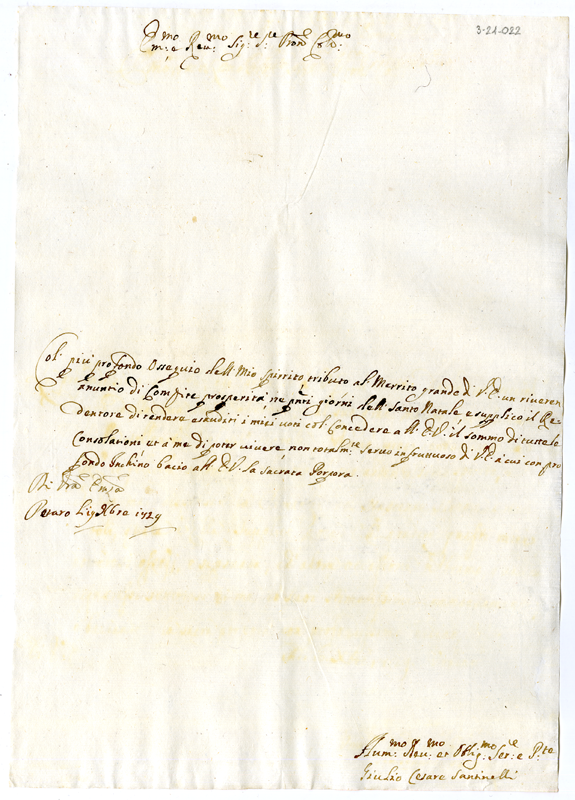 3-21-022
Em:mo e Reu:mo Sig:re S:re Pron:e Col:mo
Col' più profondo Ossequio dell' Mio Spirrito tributo al' Merrito grande di V.E. un riueren
anuntio di Compite prosperità ne pñti giorni dell' Santo Natale e supplico il Re-
dentore di rendere esauditi i miei uoti col' Concedere a ll' E.V. il sommo di tutte le
Consolationi et à me di poter viuere non totalm:te seruo infruttuoso di V.E. a cui con pro
fondo Inchino bacio a ll' E.V. la sacrata Porpora.
Di Vrã Emza
Pesaro li 19 Xbre 1729
Hum:mo Deu:mo et Obblig:mo Ser:e e
Giulio Cesare Santinelli